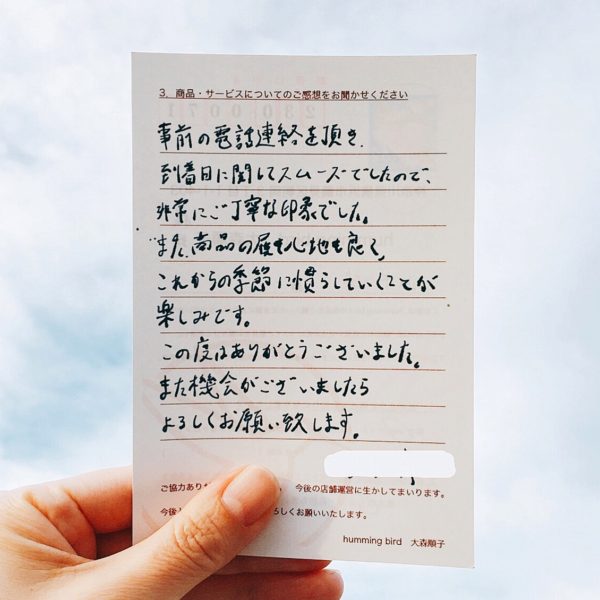 3. 商品・サービスについてのご感想をお聞かせください
事前の電話連絡を頂き、
到着日に関してスムーズでしたので、
非常にご丁寧な印象でした。
また、商品の履き心地も良く、
これからの季節に慣らしていくことが
楽しみです。
この度はありがとうございました。
また機会がございましたら
よろしくお願い致します。
ご協力あり
今後の店舗運営に生かしてまいります。
今後
ろしくお願いいたします。
humming bird 大森順子